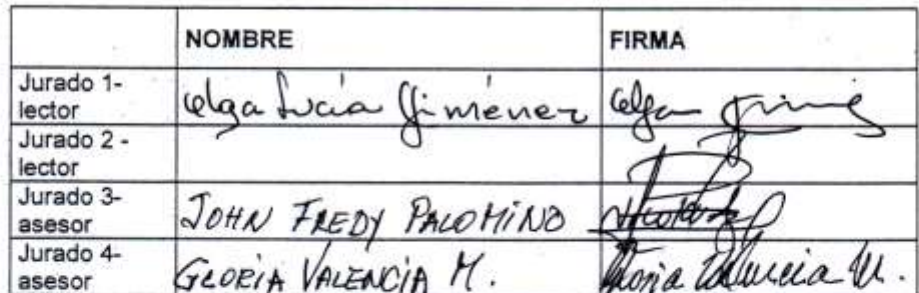 NOMBRE FIRMA
Jurado 1-
lector Olga Lucía Jiménez Olga
Jurado 2 -
lector
Jurado 3-
asesor JOHN FREDY PALOMINO
Jurado 4-
asesor GLORIA VALENCIA M. Gloria Valencia M.